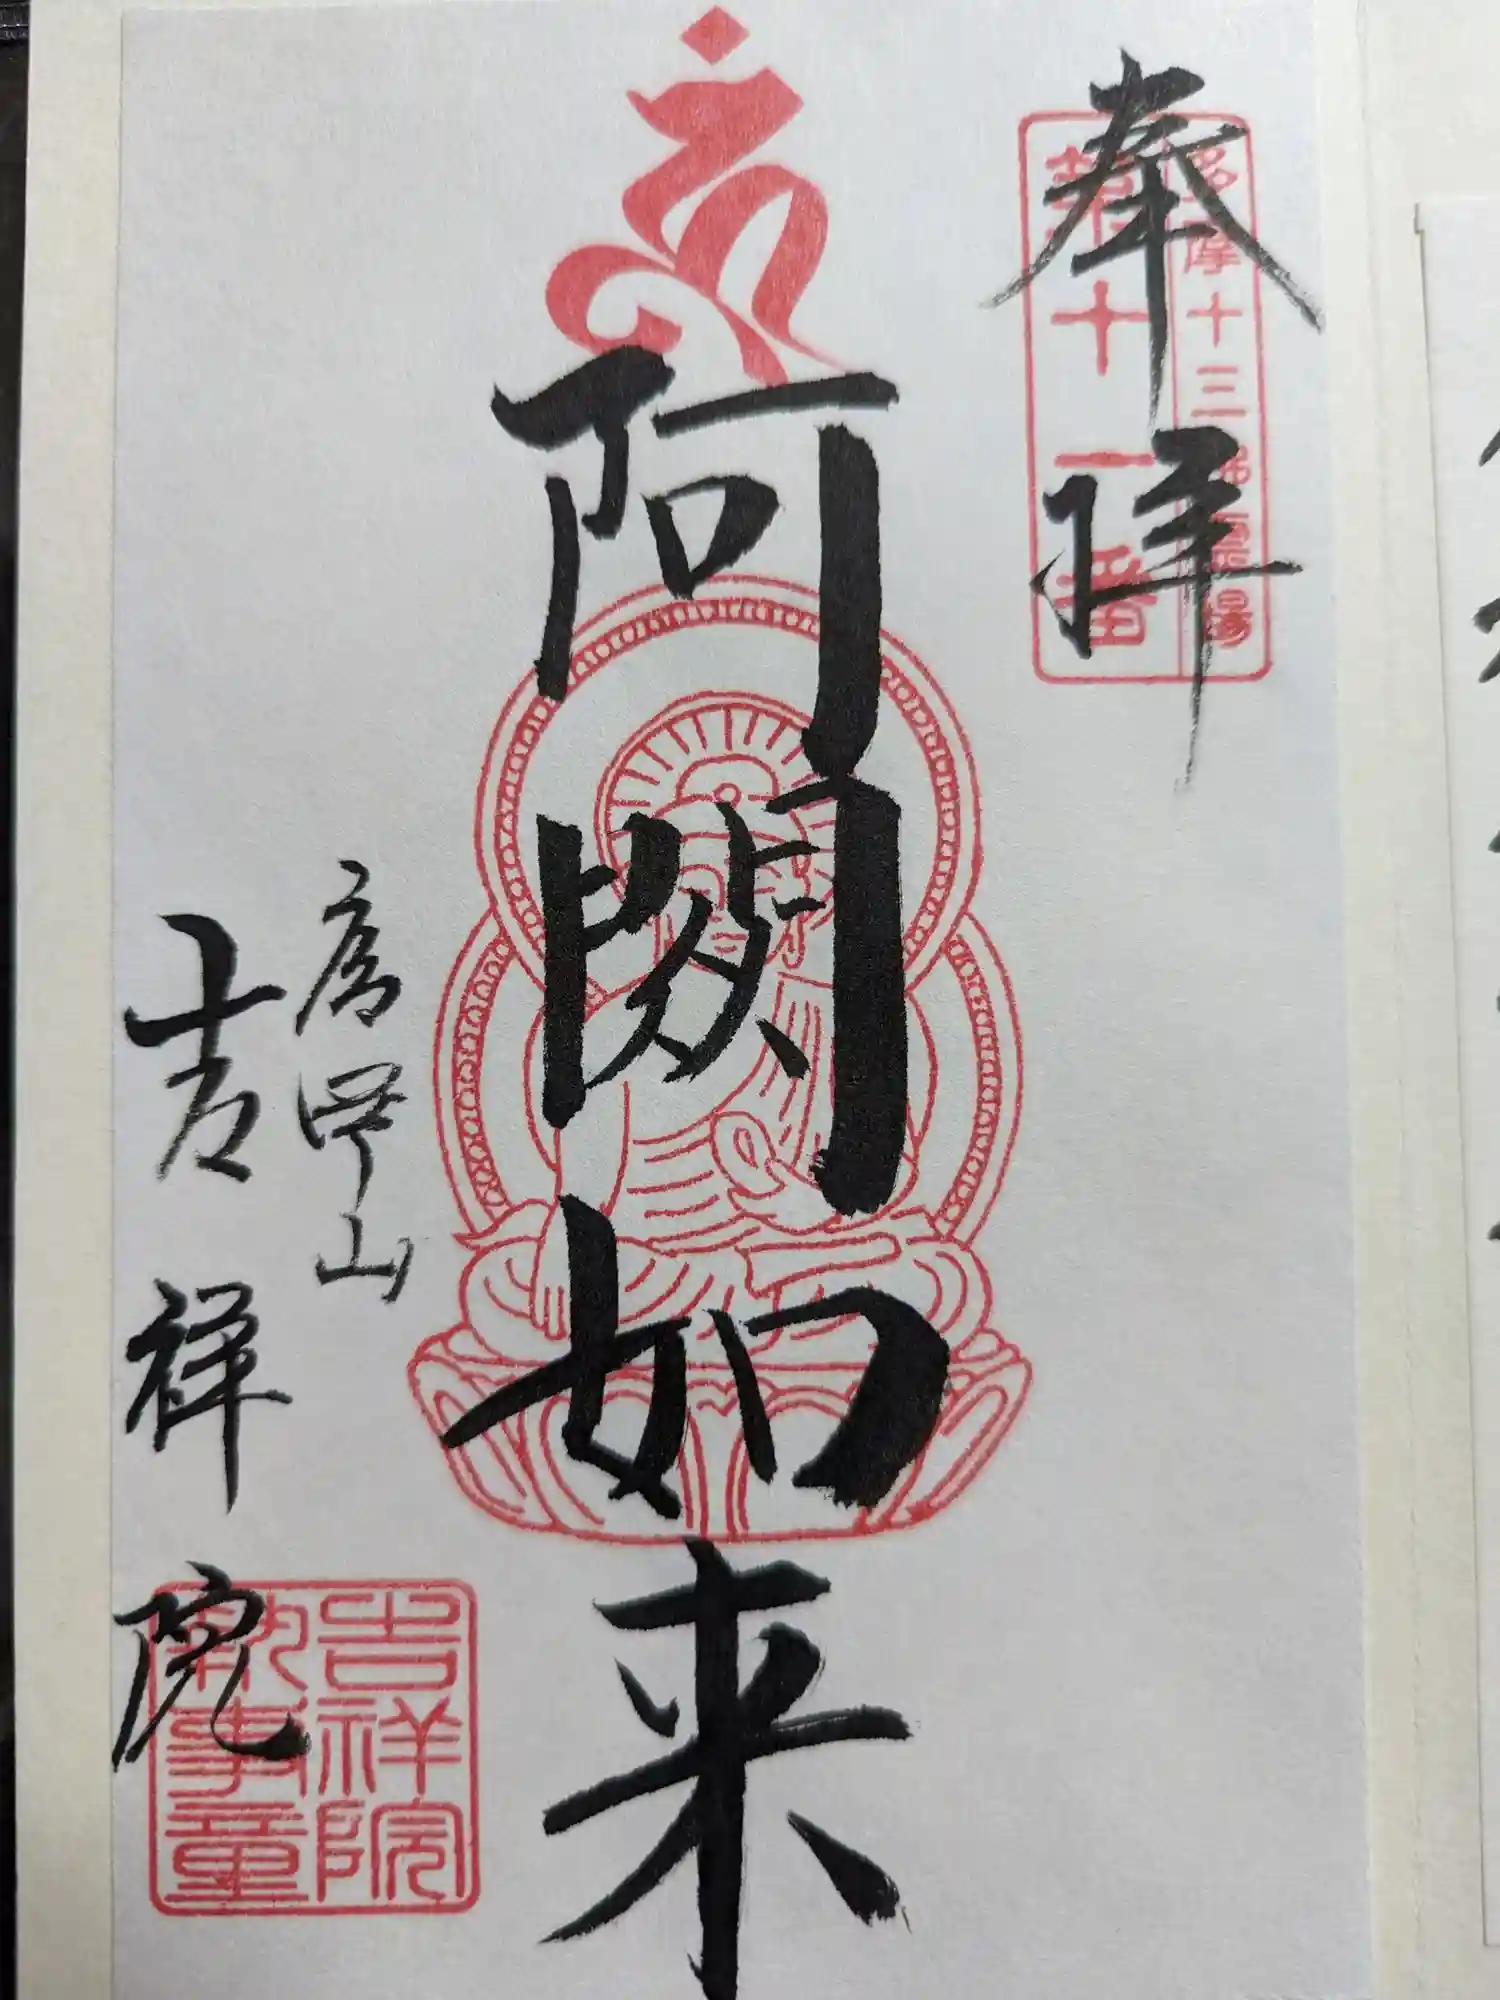 奉拝
多摩十三佛霊場
第十一番
阿閦如来
高岬山
吉祥院
吉祥院
執事章